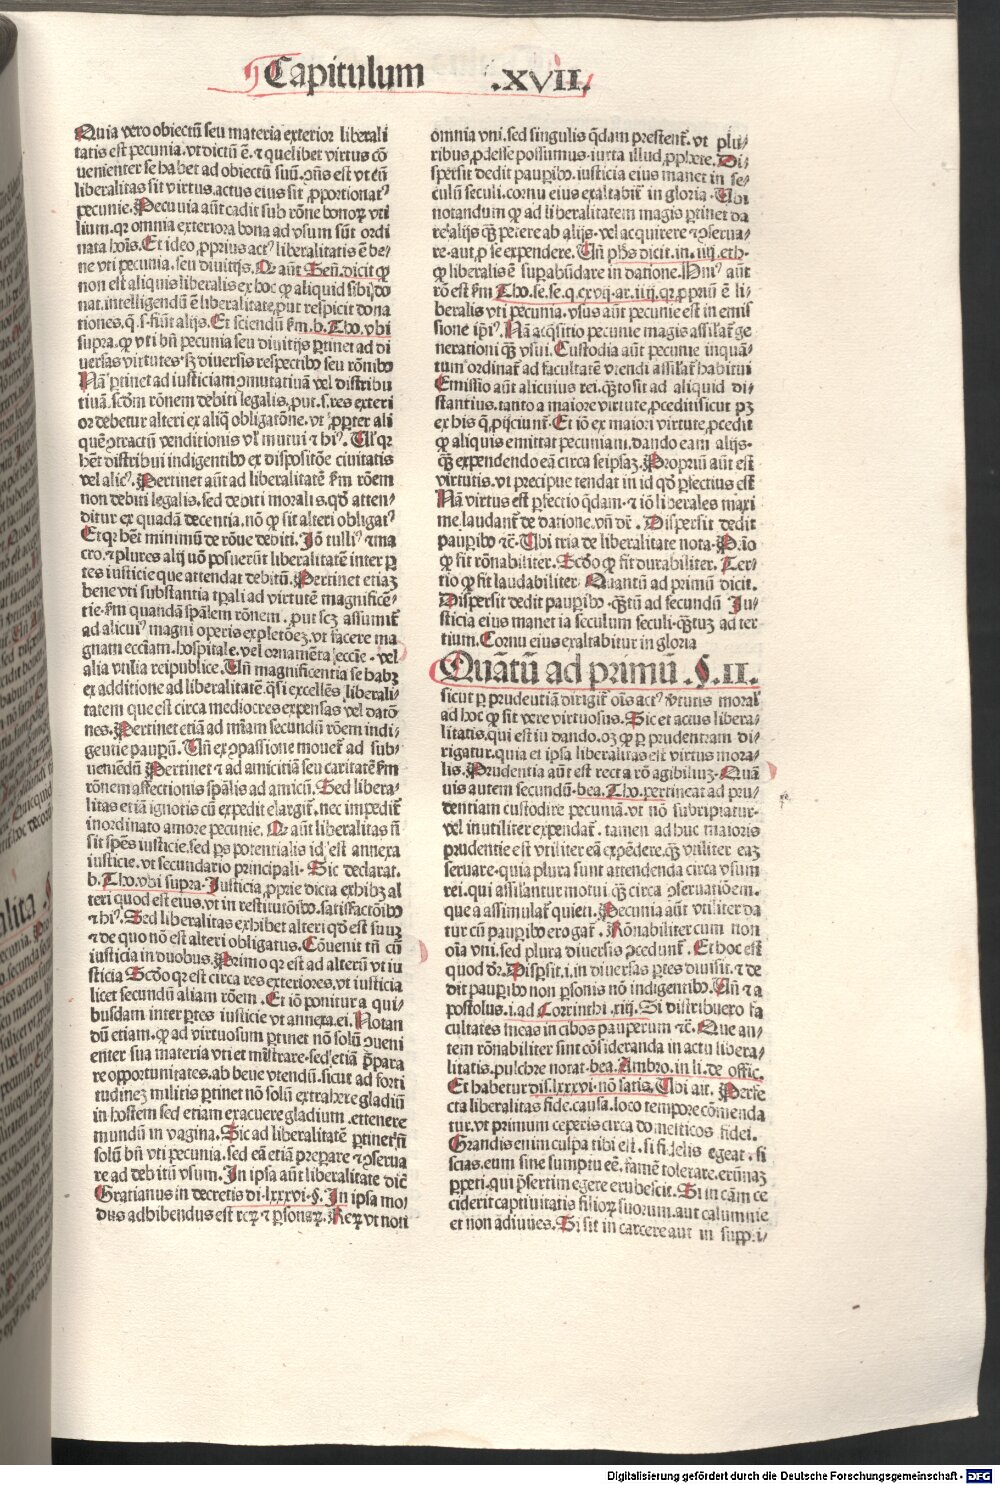 Capitulum .XVII.
Quia vero obiectũ seu materia exterior liberali
tatis est pecunia. vt dictũ ẽ. ⁊ quelibet virtus cõ
uenienter se habet ad obiectũ suũ. ꝯñs est vt cũ
liberalitas sit virtus. actus eius sit ꝓportionatꝰ
pecunie. Pecunia aũt cadit sub rõne bonoꝝ vti
lium. qꝛ omnia exteriora bona ad vsum sũt ordi
nata hoĩs. Et ideo ꝓprius actꝰ liberalitatis ẽ be-
ne vti pecunia. seu diuitijs. Qꝛ aũt Señ. dicit ꝙ
non est aliquis liberalis ex hoc ꝙ aliquid sibijpo
nat. intelligendũ ẽ liberalitate, put respicit dona
tiones. q̃. s. fiũt alijs. Et sciendũ ẜm. b. Tho. vbi
supra. ꝙ vti bñ pecunia seu diuitijs ꝑtinet ad di
uersas virtutes. sꝫ diuersis respectibꝰ seu rõnibꝰ
Nã ꝑtinet ad iusticiam ꝯmutatiuã vel distribu
tiuã. scdm rõnem debiti legalis, put. s. res exteri
or debetur alteri ex aliq̃ obligatõne. vt ꝓpter ali
quẽ ꝯtractũ venditionis vl' mutui ⁊ hiꝰ. Vl' qꝛ
hẽt distribui indigentibꝰ ex dispositõe ciuitatis
vel alicꝰ. Pertinet aũt ad liberalitatẽ ẜm rõem
non debiti legalis. sed debiti moralis. qď atten-
ditur ex quadã decentia. nõ ꝙ sit alteri obligatꝰ
Et qꝛ hẽt minimũ de rõne debiti. Jõ tulliꝰ ⁊ ma
cro. ⁊ plures alij uõ posuerũt liberalitatẽ inter ꝑ
tes iusticie que attendat debitũ. Pertinet etiaꝫ
bene vti substantia tꝑali ad virtutẽ magnificẽ-
tie. ẜm quandã spãlem rõnem. put scꝫ assumit̃
ad alicuiꝰ magni operis expletõeꝫ. vt facere ma
gnam eccl̃iam. hospitale. vel ornamẽta eccl̃ie. vel
alia vtilia reipublice. Vñ magnificentia se habꝫ
ex additione ad liberalitatẽ. q̃si excellẽs liberali-
tatem que est circa mediocres expensas vel datõ
nes. Pertinet etiã ad mĩam secundũ rõem indi-
gentie pauperũ. Vñ ex ꝯpassione mouet̃ ad sub-
ueniẽdũ Pertinet ⁊ ad amicitiã seu caritatẽ ẜm
rõnem affectionis spãlis ad amicũ. Sed libera-
litas etiã ignotis cũ expedit elargit̃. nec impedit̃
inordinato amore pecunie. Qꝛ aũt liberalitas ñ
sit spẽs iusticie. sed ps potentialis id est annexa
iusticie. vt secundario principali. Sic declarat.
b. Tho. vbi supra. Justicia ꝓprie dicta exhibꝫ al
teri quod est eius. vt in restitutõibꝰ. satisfactõibꝰ
⁊ hiꝰ. Sed liberalitas exhibet alteri qď est suuꝫ
⁊ de quo nõ est alteri obligatus. Cõuenit tñ cũ
iusticia in duobus. Primo qꝛ est ad alterũ vt iu
sticia Scďo qꝛ est circa res exteriores. vt iusticia
licet secundũ aliam rõem. Et iõ ponitura qui-
busdam inter ꝑtes iusticie vt annexa ei. Notan
dũ etiam. ꝙ ad virtuosum ꝑtinet nõ solũ ꝯueni
enter sua materia vti et mĩstrare. sed etiã p̃para
re opportunitates. ab bene vtendũ. sicut ad forti
tudineꝫ militis ꝑtinet nõ solũ extrahere gladiũ
in hostem sed etiam exacuere gladium. et tenere
mundũ in vagina. Sic ad liberalitatẽ ꝑtinet ñ
solũ bñ vti pecunia. sed eã etiã preparare ⁊ ꝯserua
re ad debitũ vsum. Jn ipsa aũt liberalitate dic̃
Gratianus in decretis di. lxxxvi. §. Jn ipsa mo/
dus adhibendus est reꝝ ⁊ ꝑsonaꝝ. Reꝝ vt non
omnia vni. sed singulis q̃dam prestent̃. vt plu/
ribus, pdesse possumus. iuxta illud, pphete. Di-
spersit dedit pauꝑibꝰ. iusticia eius manet in se-
culũ seculi. cornu eius exaltabit̃ in gloria. Vbi
notandum ꝙ ad liberalitatem magis ꝑtinet da
re alijs q̃ꝫ petere ab alijs. vel acquirere ⁊ ꝯserua-
re. aut, p se expendere. Vñ ph̃s dicit. in. iiij. eth.
ꝙ liberalis ẽ suꝑabũdare in datione. Huiꝰ aũt
rõ est ẜm Tho. se. se. q. cxvij. ar. iiij. qꝛ, ppriũ ẽ li-
beralis vti pecunia. vsus aũt pecunie est in emis
sione ip̃iꝰ. Nã acq̃sitio pecunie magis assilat̃ ge
nerationi q̃ꝫ vsui. Custodia aũt pecunie inquã-
tum ordinat̃ ad facultatẽ vtendi assilat̃ habitui
Emissio aũt alicuius rei. q̃ꝫto sit ad aliquid di-
stantius. tanto a maiore virtute, pcedit. sicut pꝫ
ex his q̃, pijciunt̃. Et iõ ex maiori virtute, pcedit
ꝙ aliquis emittat pecuniam, dando eam alijs.
q̃ꝫ expendendo eã circa seipsaꝫ. Propriũ aũt est
virtutis. vt precipue tendat in id qď ꝑfectius est
Nã virtus est ꝑfectio q̃dam. ⁊ iõ liberales maxi
me. laudant̃ de datione. vñ dr̃. Dispersit dedit
pauꝑibꝰ ⁊c̃. Vbi tria de liberalitate nota. Pr̃io
ꝙ fit rõnabiliter. Scďo ꝙ fit durabiliter. Ter-
tio ꝙ fit laudabiliter Quantũ ad primũ dicit.
Dispersit dedit pauꝑibꝰ. q̃ꝫtũ ad secundũ Ju/
sticia eius manet ia seculum seculi. q̃ꝫtuꝫ ad ter
tium. Cornu eius exaltabitur in gloria
Quãtũ ad primũ .§. II.
sicut ꝑ prudentiã dirigit̃ oĩs actꝰ v̾tutis moral'
ad hoc ꝙ sit vere virtuosus. Sic et actus libera-
litatis. qui est in dando. oꝫ ꝙ ꝑ prudentiam di-
rigatur. quia et ipsa liberalitas est virtus mora-
lis. Prudentia aũt est recta rõ agibiliuꝫ. Quã
uis autem secundũ. bea. Tho. pertineat ad pru-
dentiam custodire pecuniã. vt nõ subripiatur.
vel inutiliter expendat̃. tamen adhuc maioris
prudentie est vtiliter eã expẽdere. q̃ꝫ vtiliter eaꝫ
seruare. quia plura sunt attendenda circa vsum
rei. qui assilantur motui q̃ꝫ circa ꝯseruatiõem.
que assimulat̃ quieti. Pecunia aũt vtiliter da
tur cũ pauꝑibꝰ erogat̃. Rõnabiliter cum non
oĩa vni. sed plura diuersis ꝯcedunt̃. Et hoc est
quod dr̃. Dispsit. i. in diuersas ꝑtes diuisit. ⁊ de
dit pauꝑibꝰ non ꝑsonis nõ indigentibꝰ. Vñ ⁊ a
postolus. i. ad Corrinthi. riij. Si distribuero fa
cultates meas in cibos pauperum ⁊c̃. Que au-
tem rõnabiliter sint cõsideranda in actu libera-
litatis. pulchre notat. bea. Ambro. in li. de offic̃.
Et habetur dis. lxxxvi. nõ satis. Vbi ait. Perfe
cta liberalitas fide. causa. loco tempore cõmenda
tur. vt primum ceperis circa domesticos fidei.
Grandis enim culpa tibi est. si fidelis egeat. si
scias. eum sine sumptu eẽ. famẽ tolerare. erũnaꝫ
ꝑpeti. qui p̃sertim egere erubescit. Si in cãm ce
ciderit captiuitatis filioꝝ suorum. aut calumnie
et non adiuues. Si sit in carcere aut in supp.i/
Digitalisierung gefördert durch die Deutsche Forschungsgemeinschaft - DFG